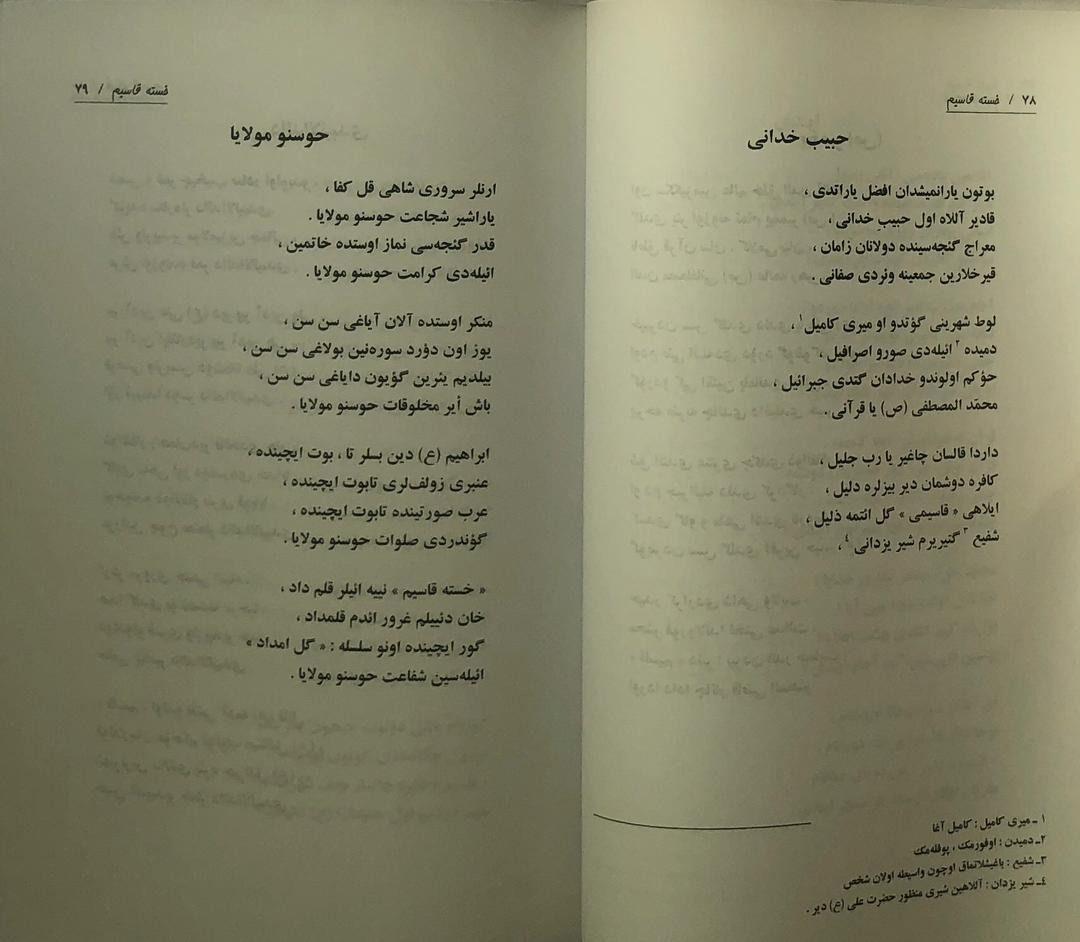 ۷۸ / خسته قاسیم
حبیب خدانی
بوتون یارانمیشدان افضل یاراتدی ،
قادیر آللاه اول حبیبِ خدانی ،
معراج گئجه‌سینده دولانان زامان ،
قیرخلارین جمعینه وئردی صفانی .
لوط شهرینی گؤتدو او میری کامیل۱ ،
دمیده ۲ ائیله‌دی صورو اصرافیل ،
حؤکم اولوندو خدادان گتدی جبرائیل ،
محمّد المصطفی (ص) یا قرآنی .
داردا قالسان چاغیر یا رب جلیل ،
کافره دوشمان دیر بیزلره دلیل ،
ایلاهی « قاسیمی » گل ائتمه ذلیل ،
شفیع ۳ گتیریرم شیر یزدانی ۴ ،
۱ ـ میری کامیل : کامیل آغا
۲ـ دمیدن : اوفورمک ، پوفله‌مک
۳ـ شفیع : باغیشلاتماق اوچون واسیطه اولان شخص
۴ـ شیر یزدان : آللاهین شیری منظور حضرت علی (ع) دیر .
خسته قاسیم / ۷۹
حوسنو مولایا
ارنلر سروری شاهی قل کفا ،
یاراشیر شجاعت حوسنو مولایا .
قدر گئجه‌سی نماز اوستده خاتمین ،
ائیله‌دی کرامت حوسنو مولایا .
منکر اوستده آلان آیاغی سن سن ،
یوز اون دؤرد سوره‌نین بولاغی سن سن ،
بیلدیم یئرین گؤیون دایاغی سن سن ،
باش أیر مخلوقات حوسنو مولایا .
ابراهیم (ع) دین بسلر تا ، بوت ایچینده ،
عنبری زولف‌لری تابوت ایچینده ،
عرب صورتینده تابوت ایچینده ،
گؤندردی صلوات حوسنو مولایا .
« خسته قاسیم » نییه ائیلر قلم داد ،
خان دئییلم غرور ائدم قلمداد ،
گور ایچینده اونو سلسله : « گل امداد »
ائیله‌سین شفاعت حوسنو مولایا .